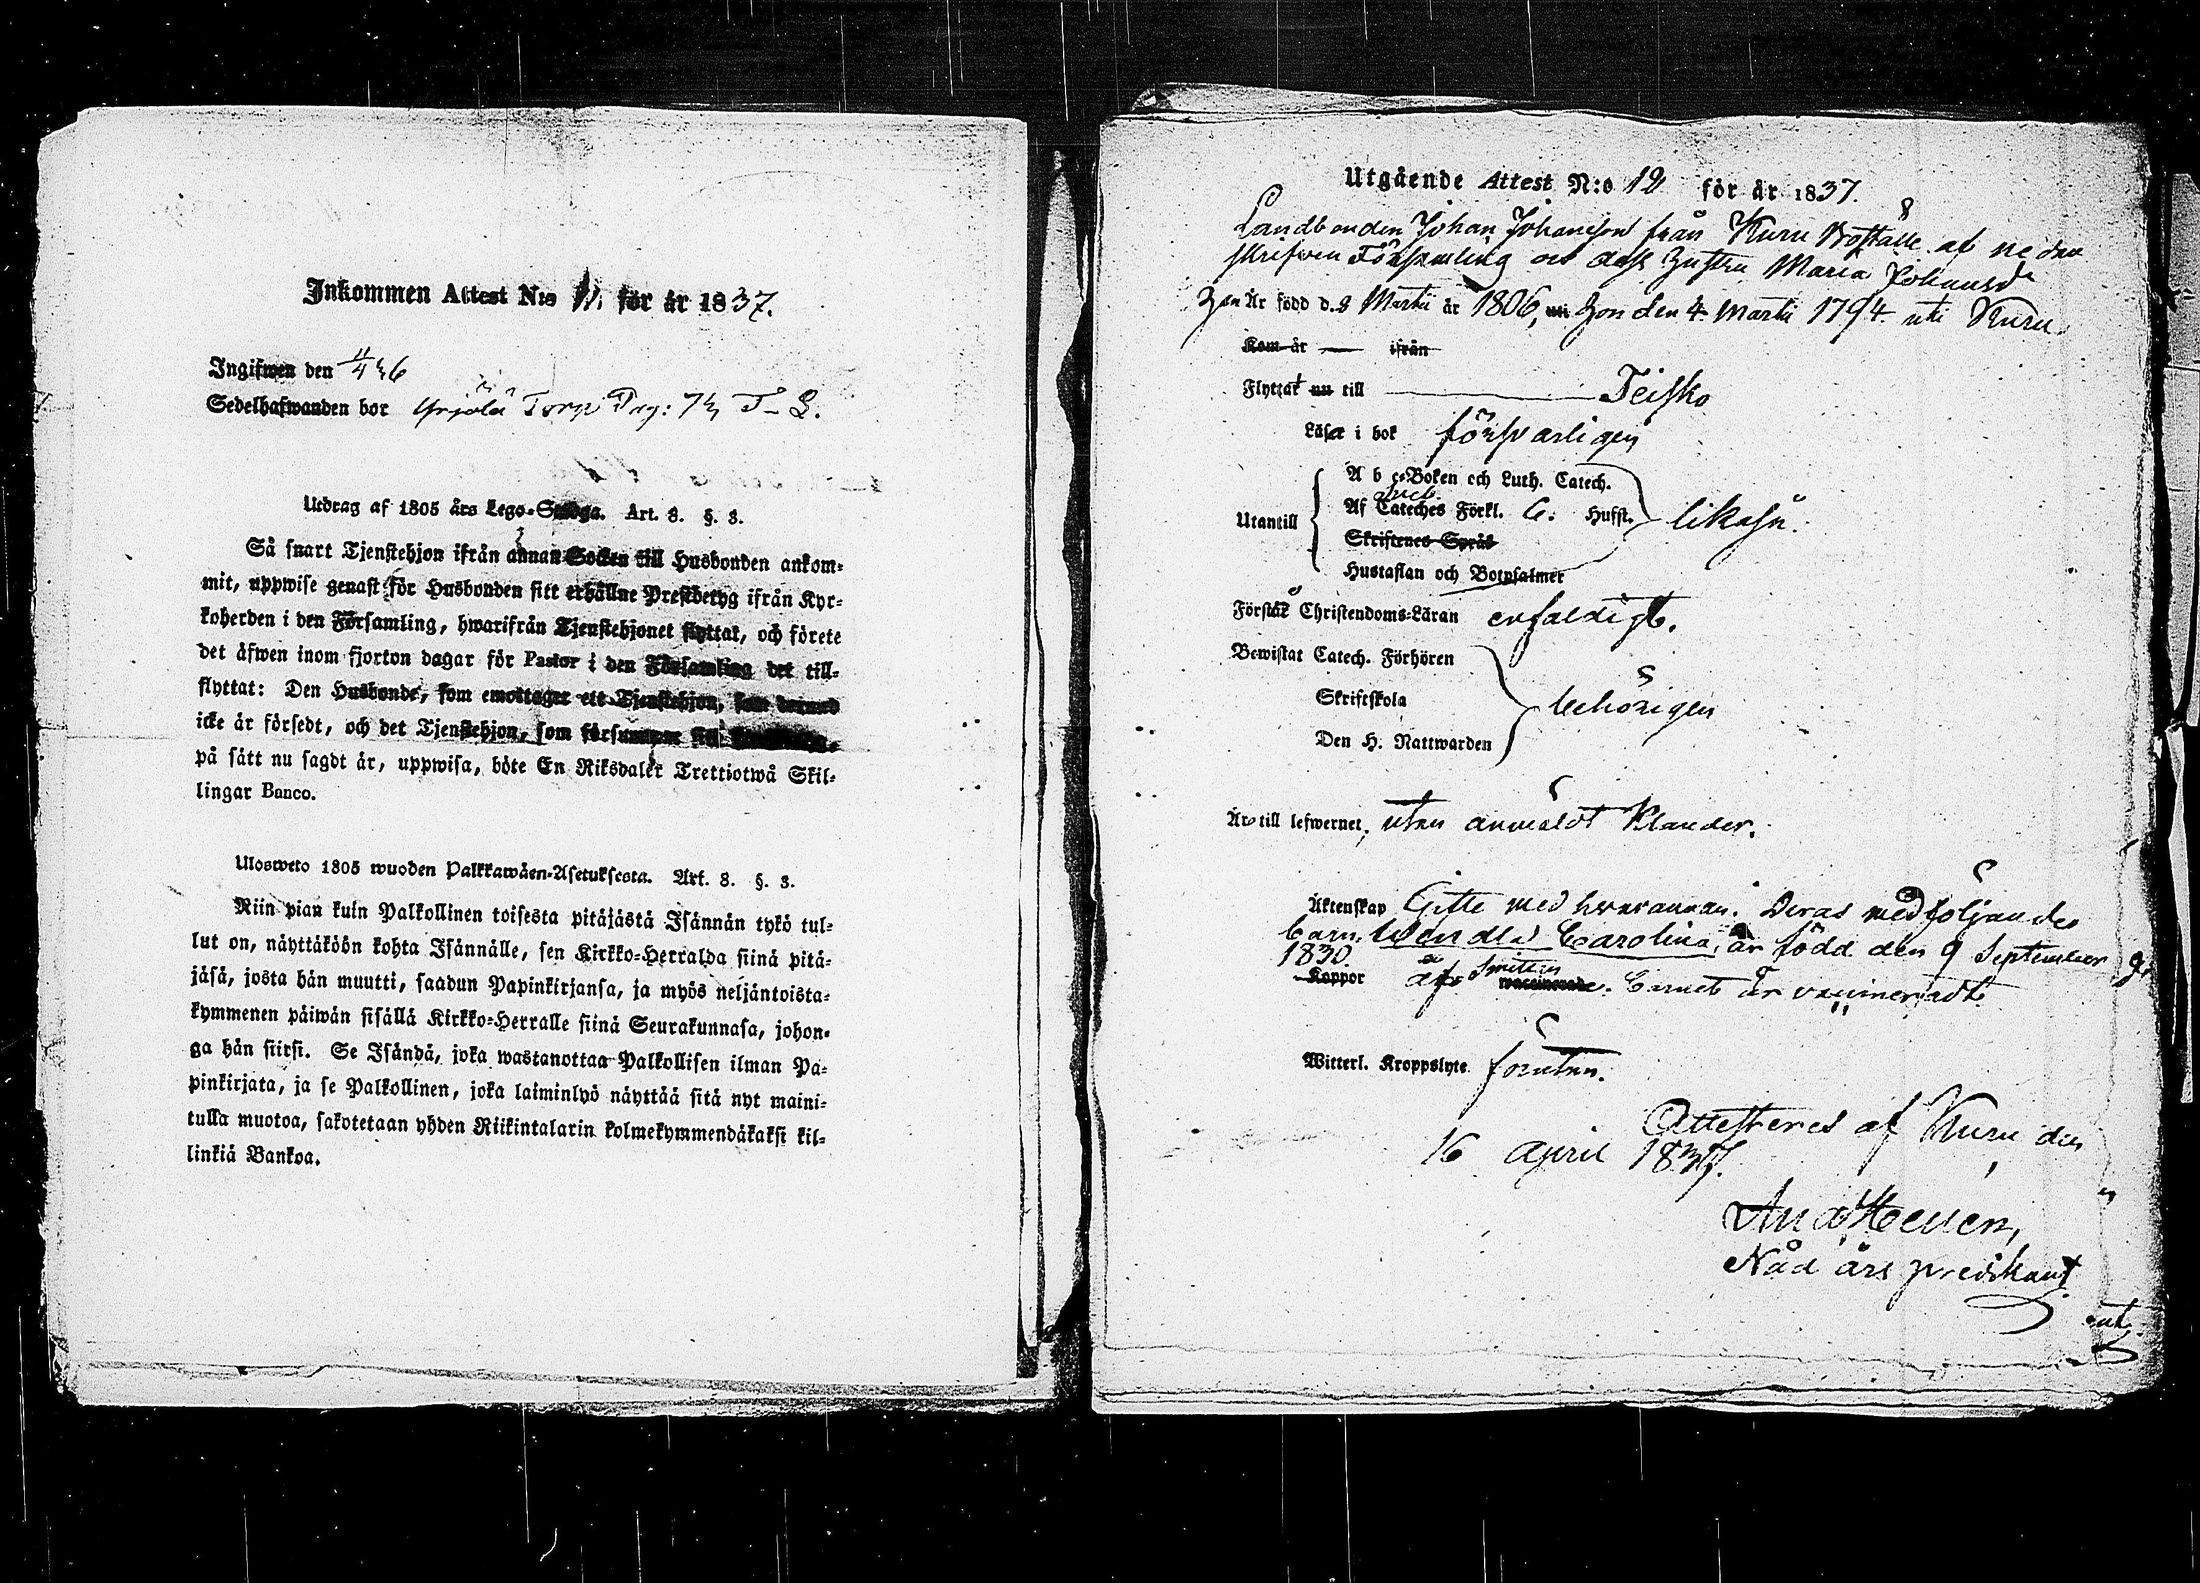 Inkommen Attest N:o 11. för år 1837.
Ingifwen den
Sedelhafwanden bor Yrjölä Torp Pag: 73 T- S.
Utdrag af 1805 års Lego-Stadga. Art. 8. §. 3.
Så snart Tjenstehjon ifrån annan Socken till Husbonden ankom=
mit, uppwise genast för Husbonden sitt erhållne Prestbetyg ifrån Kyr=
koherden i den Församling, hwarifrån Tjenstehjonet flyttat, och förete
det äfwen inom fjorton dagar för Pastor i den Församling det till=
flyttat: Den Husbonde, som emottager ett Tjenstehjon, som dermed
icke är försedt, och det Tjenstehjon, som försummar
på sätt nu sagdt är, uppwisa, böte En Riksdaler Trettiotwå Skil=
lingar Banco.
Ulosweto 1805 wuoden Palkkawäen-Asetuksesta. Art. 8. §. 3.
Niin pian kuin Palkollinen toisesta pitäjästä Isännän tykö tul=
lut on, näyttäköön kohta Isännälle, sen Kirkko=Herralda siinä pitä=
jäsä, josta hän muutti, saadun Papinkirjansa, ja myös neljäntoista=
kymmenen päiwän sisällä Kirkko=Herralle siinä Seurakunnasa, johon=
ga hän siirsi. Se Isändä, joka wastanottaa Palkollisen ilman Pa=
pinkirjata, ja se Palkollinen, joka laiminlyö näyttää sitä nyt maini=
tulla muotoa, sakotetaan yhden Riikintalarin kolmekymmendäkaksi kil=
linkiä Bankoa.
Utgående Attest N:o 12 för år 1837.
Landbonden Johan Johansson från Kuru Boställe af nedan
skrifven Församling och dess Hustru Maria Johansd
Han är född d. 9 Martii år 1806, uti Hon den 4. Martii 1794. uti Kuru.
Kom år — ifrån
Flyttat nu till — Teisko
Läser i bok försvarligen
A b c=Boken och Luth. Catech.
Af Cateches Förkl. 6. Hufst. likaså.
Utantill
Skriftenes Språk
Hustaflan och Botpsalmer
Förstår Christendoms=Läran enfaldigt.
Bewistat Catech. Förhören
Skriftskola behörigen
Den H. Nattwarden
Äro till lefwernet, utan anmäldt Klander.
Äktenskap Gifte med hvarannan. Deras medföljande
barn Wendla Carolina, är född den 9 September
1830.
Koppor äfv. Smitten vaccinerade. Barnet är vaccineradt
Witterl. Kroppslyte förutan.
Attesteres af Kuru den
16 April 1837.
And
Nåd års predikant